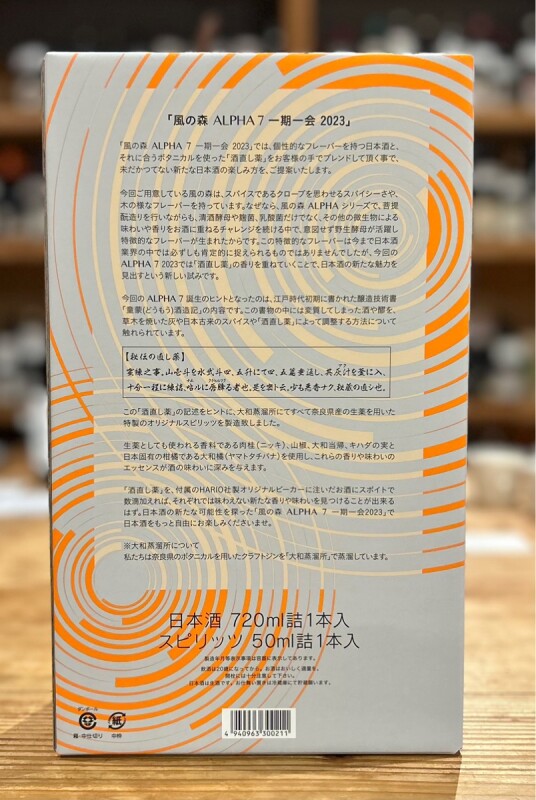 「風の森 ALPHA 7 一期一会 2023」
「風の森 ALPHA 7 一期一会 2023」では、個性的なフレーバーを持つ日本酒と、
それに合うボタニカルを使った「酒直し薬」をお客様の手でブレンドして頂く事で、
未だかつてない新たな日本酒の楽しみ方を、ご提案いたします。
今回ご用意している風の森は、スパイスであるクローブを思わせるスパイシーさや、
木の様なフレーバーを持っています。なぜなら、風の森 ALPHA シリーズで、菩提
酛造りを行いながらも、清酒酵母や麹菌、乳酸菌だけでなく、その他の微生物による
味わいや香りをお酒に重ねるチャレンジを続ける中で、意図せず野生酵母が活躍し
特徴的なフレーバーが生まれたからです。この特徴的なフレーバーは今まで日本酒
業界の中では必ずしも肯定的に捉えられるものではありませんでしたが、今回の
ALPHA 7 2023では「酒直し薬」の香りを重ねていくことで、日本酒の新たな魅力を
見出すという新しい試みです。
今回の ALPHA 7 誕生のヒントとなったのは、江戸時代初期に書かれた醸造技術書
「童蒙(どうもう)酒造記」の内容です。この書物の中には変質してしまった酒や醪を、
草木を焼いた灰や日本古来のスパイスや「酒直し薬」によって調整する方法について
触れられています。
【秘伝の直し薬】
この「酒直し薬」の記述をヒントに、大和蒸溜所にてすべて奈良県産の生薬を用いた
特製のオリジナルスピリッツを製造致しました。
生薬としても使われる香料である肉桂(ニッキ)、山椒、大和当帰、キハダの実と
日本固有の柑橘である大和橘(ヤマトタチバナ)を使用し、これらの香りや味わいの
エッセンスが酒の味わいに深みを与えます。
「酒直し薬」を、付属のHARIO社製オリジナルビーカーに注いだお酒にスポイトで
数滴加えれば、それぞれでは味わえない新たな香りや味わいを見つけることが出来る
はず。日本酒の新たな可能性を探った「風の森 ALPHA 7 一期一会2023」で
日本酒をもっと自由にお楽しみくださいませ。
※大和蒸溜所について
私たちは奈良県のボタニカルを用いたクラフトジンを「大和蒸溜所」で蒸溜しています。
日本酒 720ml詰1本入
スピリッツ 50ml詰1本入
製造年月等表示事項は容器に表示してあります。
飲酒は20歳になってから。お酒はおいしく適量を。
開栓には十分注意して下さい。
日本酒は生酒です。お仕舞い置きは冷蔵庫にて貯蔵願います。
ダンボール
紙
箱・中仕切り
中栓
4 940963 300211